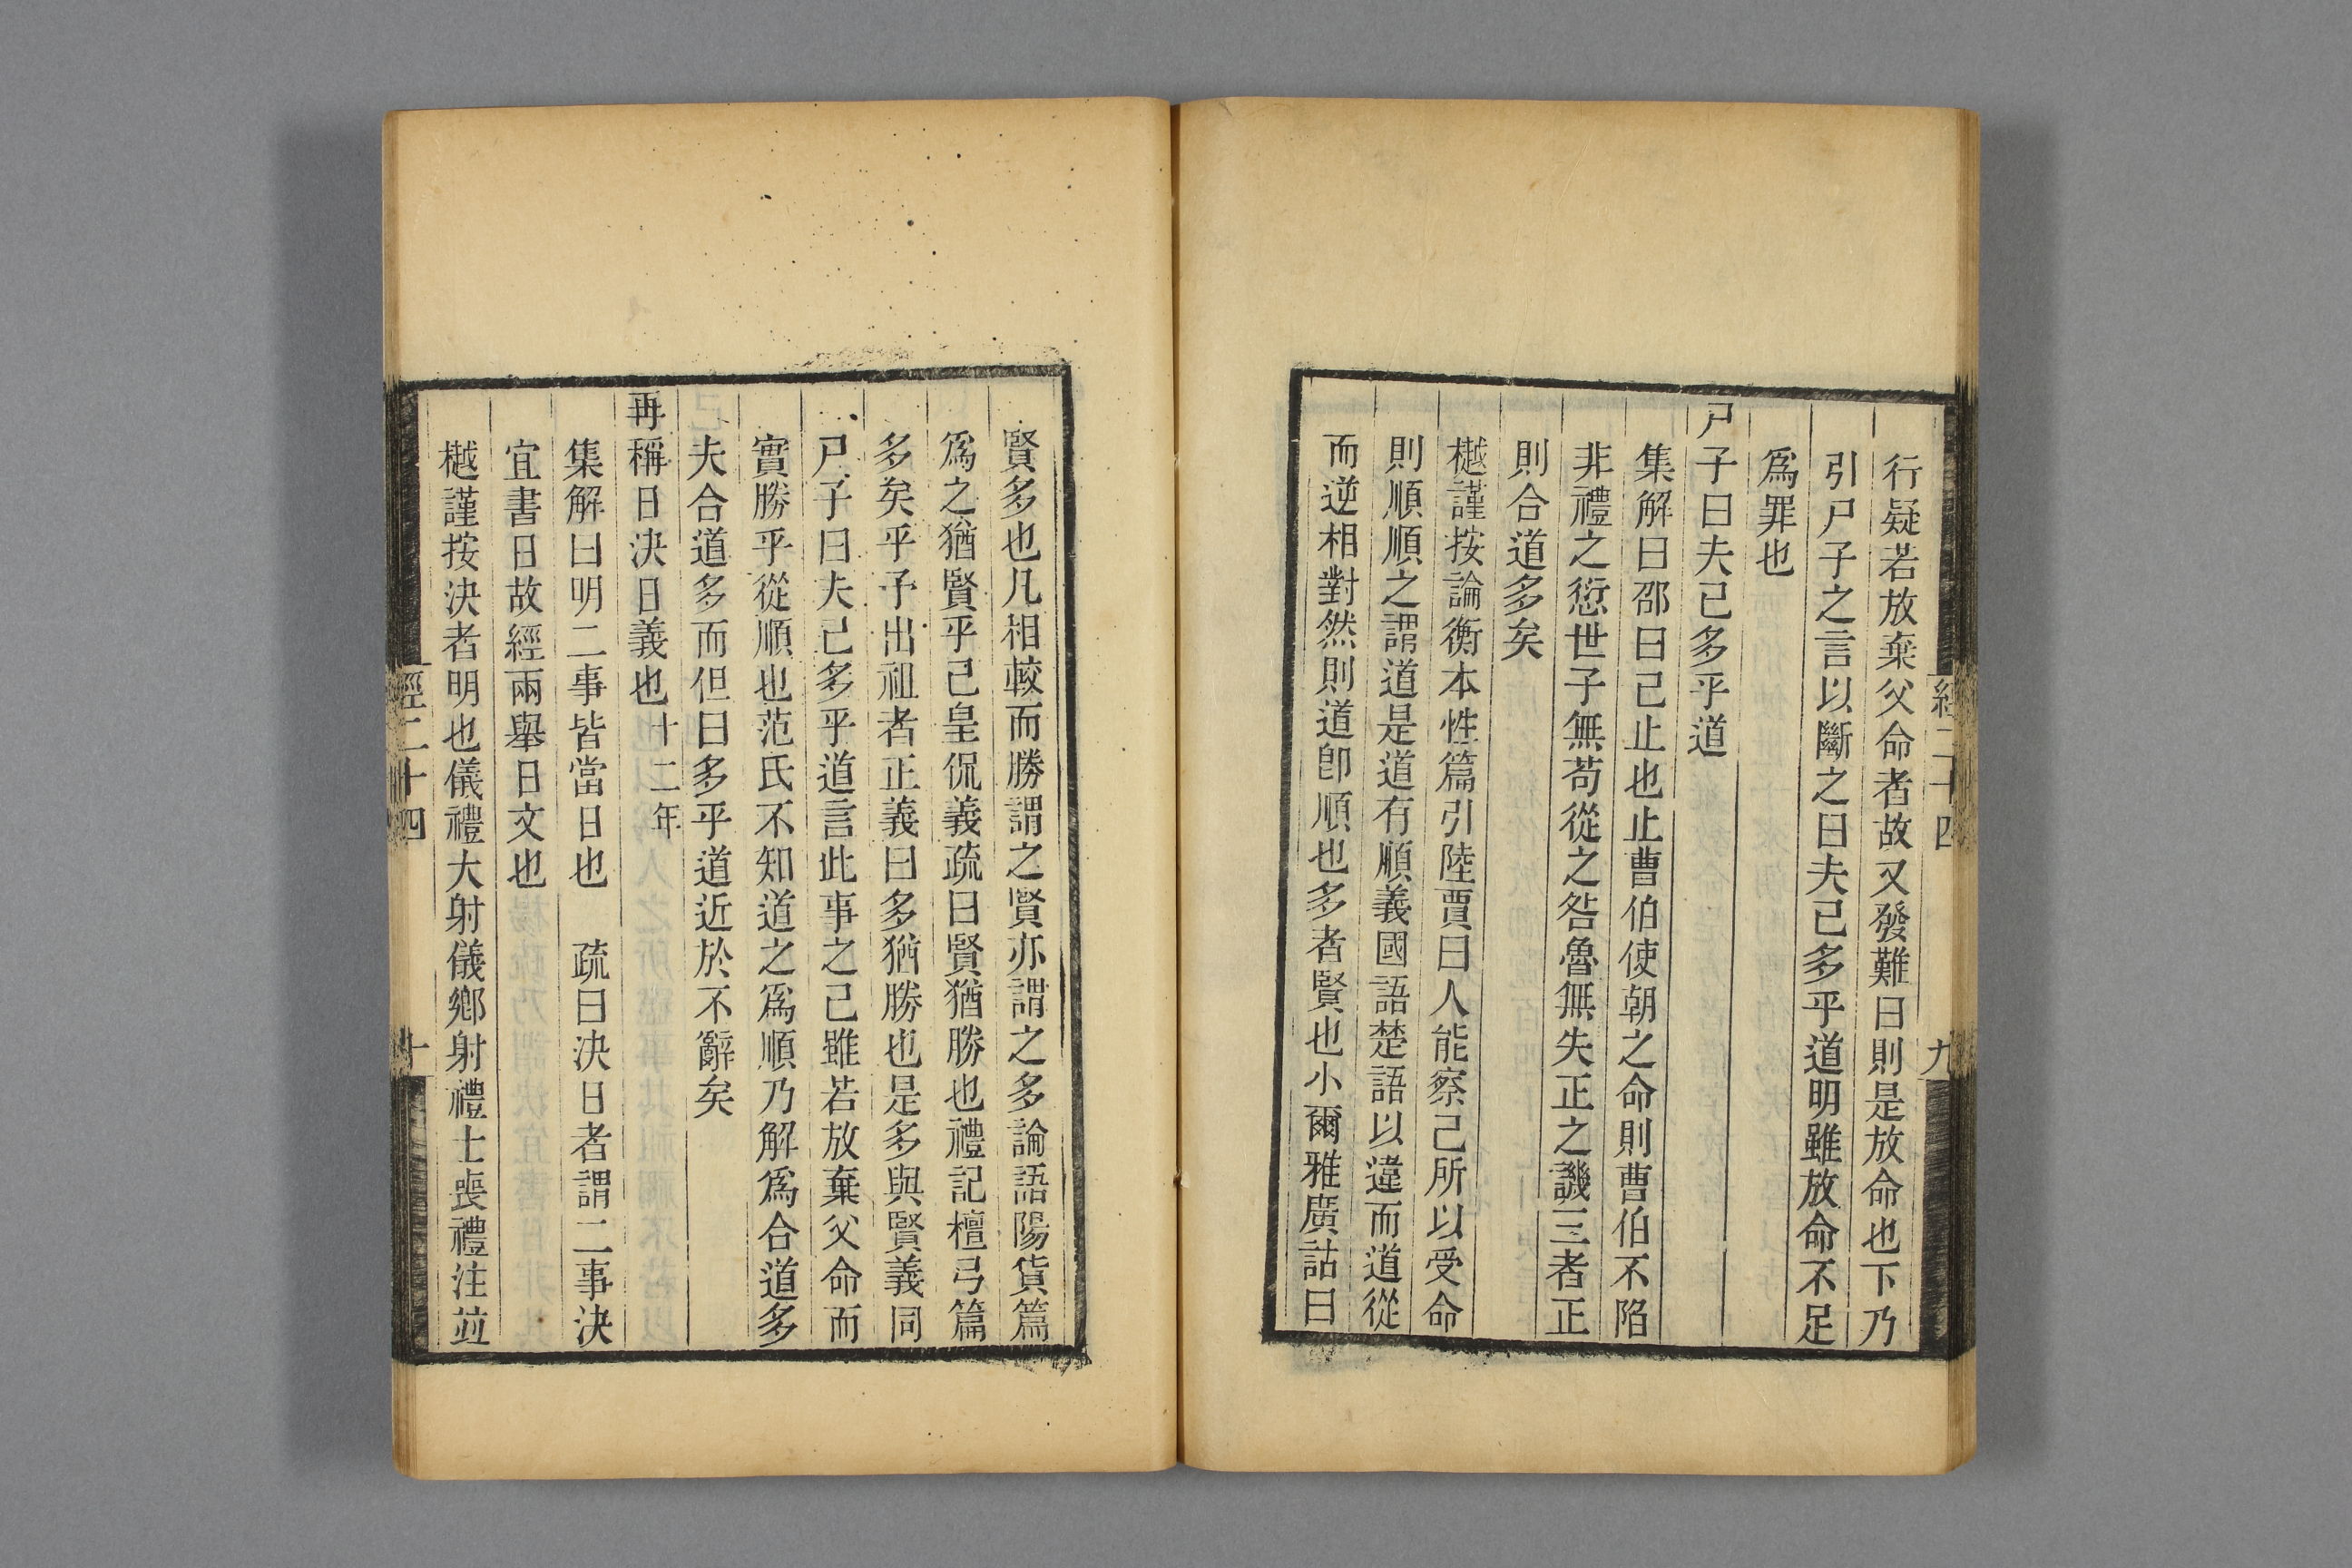 經二十四
九
行疑若放棄父命者故又發難曰則是放命也下乃
引尸子之言以斷之曰夫己多乎道明雖放命不足
爲罪也
尸子曰夫己多乎道
集解曰邵曰己止也止曹伯使朝之命則曹伯不陷
非禮之愆世子無苟從之咎魯無失正之譏三者正
則合道多矣
樾謹按論衡本性篇引陸賈曰人能察己所以受命
則順順之謂道是道有順義國語楚語以違而道從
而逆相對然則道卽順也多者賢也小爾雅廣詁曰
賢多也凡相較而勝謂之賢亦謂之多論語陽貨篇
爲之猶賢乎己皇侃義疏曰賢猶勝也禮記檀弓篇
多矣乎予出祖者正義曰多猶勝也是多與賢義同
尸子曰夫己多乎道言此事之己雖若放棄父命而
實勝乎從順也范氏不知道之爲順乃解爲合道多
夫合道多而但曰多乎道近於不辭矣
再稱日決日義也十二年
集解曰明二事皆當日也　疏曰決日者謂二事決
宜書日故經兩舉日文也
樾謹按決者明也儀禮大射儀鄉射禮士喪禮注竝
經二十四
十